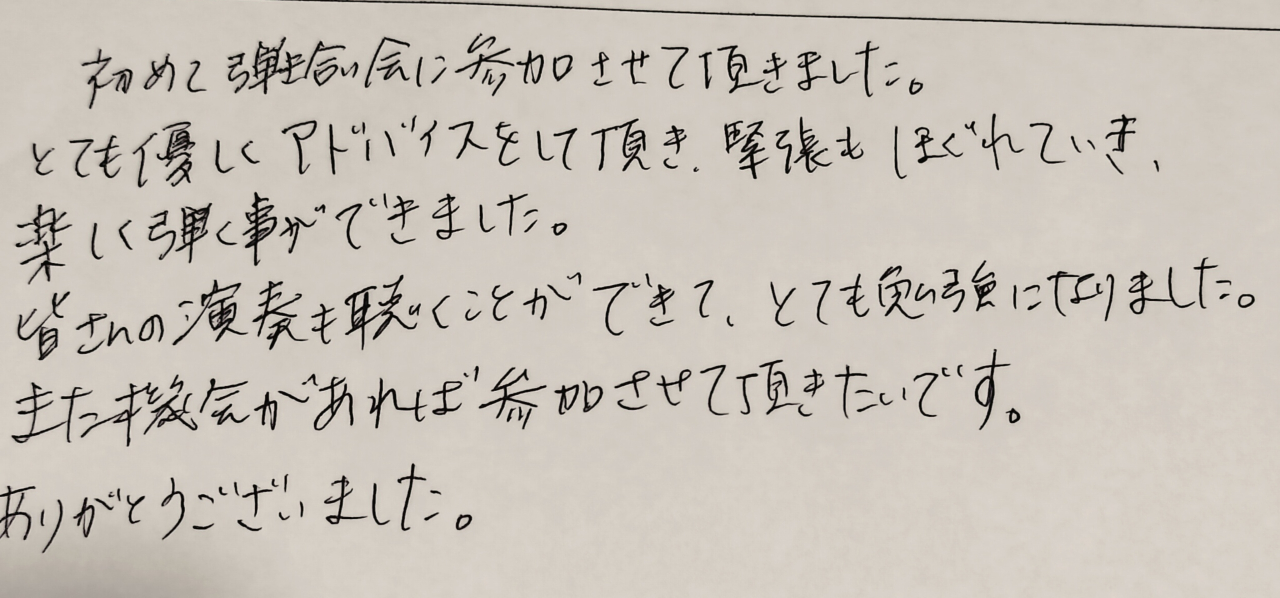 初めて弾き合い会に参加させて頂きました。
とても優しくアドバイスをして頂き、緊張もほぐれていき、
楽しく弾く事ができました。
皆さんの演奏も聴くことができて、とても勉強になりました。
また機会があれば参加させて頂きたいです。
ありがとうございました。